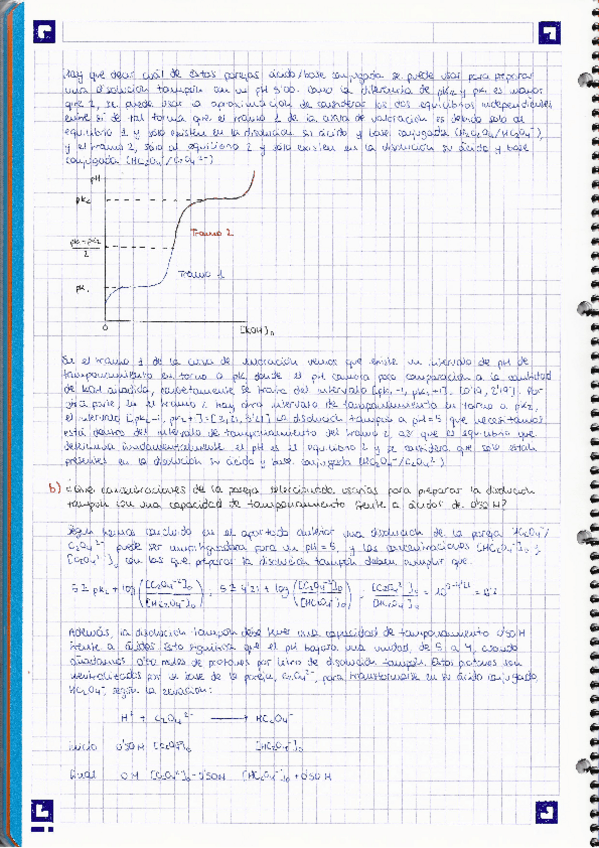 Hay que decir cuál de estas parejas ácido/base conjugada se puede usar para preparar
una disolución tampón con un pH 5'00. Como la diferencia de pK₂ y pK₁ es mayor
que 2, se puede usar la aproximación de considerar los dos equilibrios independientes
entre sí de tal forma que el tramo 1 de la curva de valoración es debido solo al
equilibrio 1 y sólo existen en la disolución su ácido y base conjugada (H₂C₂O₄/HC₂O₄⁻),
y el tramo 2, solo al equilibrio 2 y sólo existen en la disolución su ácido y base
conjugada (HC₂O₄⁻/C₂O₄²⁻)
pH
pK₂
Tramo 2
pK₁-pK₂
2
Tramo 1
pK₁
0
[KOH]₀
En el tramo 1 de la curva de valoración vemos que existe un intervalo de pH de
tamponamiento en torno a pK₁ donde el pH cambia poco comparación a la cantidad
de KOH añadida, concretamente se trata del intervalo [pK₁-1, pK₁+1]. [0'19, 2'19]. Por
otra parte, en el tramo 2 hay otro intervalo de tamponamiento en torno a pK₂,
el intervalo [pK₂-1, pK₂+1]=[3'21, 5'21] La disolución tampón a pH=5 que necesitamos
está dentro del intervalo de tamponamiento del tramo 2, así que el equilibrio que
determina fundamentalmente el pH es el equilibrio 2 y se considera que solo están
presentes en la disolución su ácido y base conjugada (HC₂O₄⁻/C₂O₄²⁻)
b) ¿Qué concentraciones de la pareja seleccionada usarías para preparar la disolución
tampón con una capacidad de tamponamiento frente a ácidos de 0'50 M?
Según hemos concluido en el apartado anterior una disolución de la pareja HC₂O₄⁻/
C₂O₄²⁻ puede ser amortiguadora para un pH=5, y las concentraciones [HC₂O₄⁻]₀ y
[C₂O₄²⁻]₀ con las que preparar la disolución tampón deben cumplir que
5 = pK₂ + log([C₂O₄²⁻]₀/[HC₂O₄⁻]₀), 5 = 4'21 + log([C₂O₄²⁻]₀/[HC₂O₄⁻]₀) [C₂O₄²⁻]₀/[HC₂O₄⁻]₀ = 10^(5-4'21) = 6'2
Además, la disolución tampón debe tener una capacidad de tamponamiento 0'50 M
frente a ácidos. Esto significa que el pH bajará una unidad, de 5 a 4, cuando
añadamos 0'50 moles de protones por litro de disolución tampón. Estos protones son
neutralizados por la base de la pareja, C₂O₄²⁻, para transformarse en su ácido conjugado,
HC₂O₄⁻, según la ecuación:
H⁺ + C₂O₄²⁻ ⟶ HC₂O₄⁻
Inicio 0'50M [C₂O₄²⁻]₀ [HC₂O₄⁻]₀
Final 0M [C₂O₄²⁻]₀-0'50M [HC₂O₄⁻]₀+0'50M